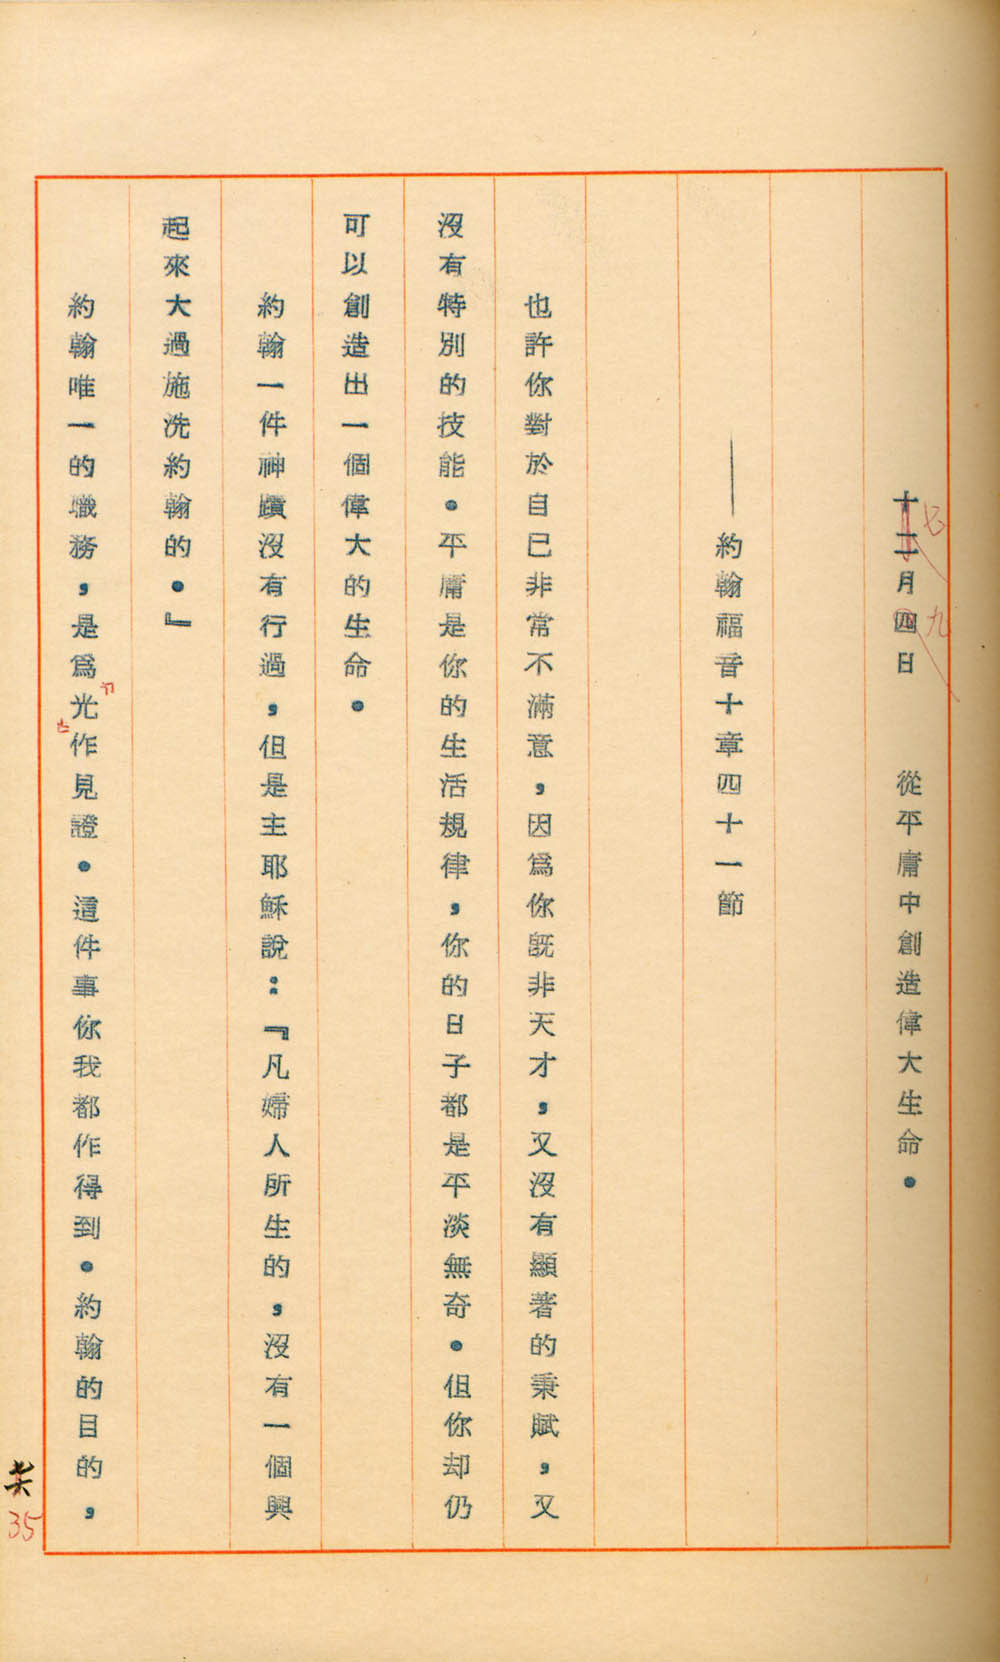 十二月四日　從平庸中創造偉大生命．
七
九
——約翰福音十章四十一節
也許你對於自已非常不滿意，因爲你旣非天才，又沒有顯著的秉賦，又
沒有特別的技能．平庸是你的生活規律，你的日子都是平淡無奇．但你却仍
可以創造出一個偉大的生命．
約翰一件神蹟沒有行過，但是主耶穌說：『凡婦人所生的，沒有一個興
起來大過施洗約翰的．』
約翰唯一的職務，是爲光作見證．這件事你我都作得到．約翰的目的，
35